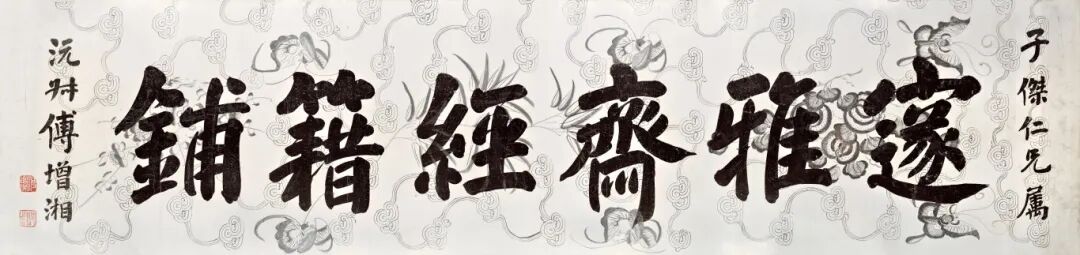 子傑仁兄属
邃雅齋經籍鋪
沅叔傅增湘